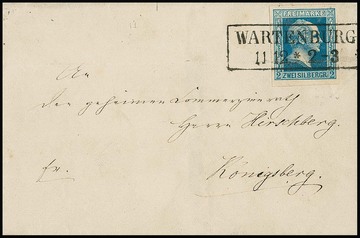 FREIMARKE
WARTENBURG
11 12 * 2-3
2 ZWEI SILBERGR. 2
An
den geheimen Commerzienrath
Herrn Hirschberg.
fr.
Königsberg.